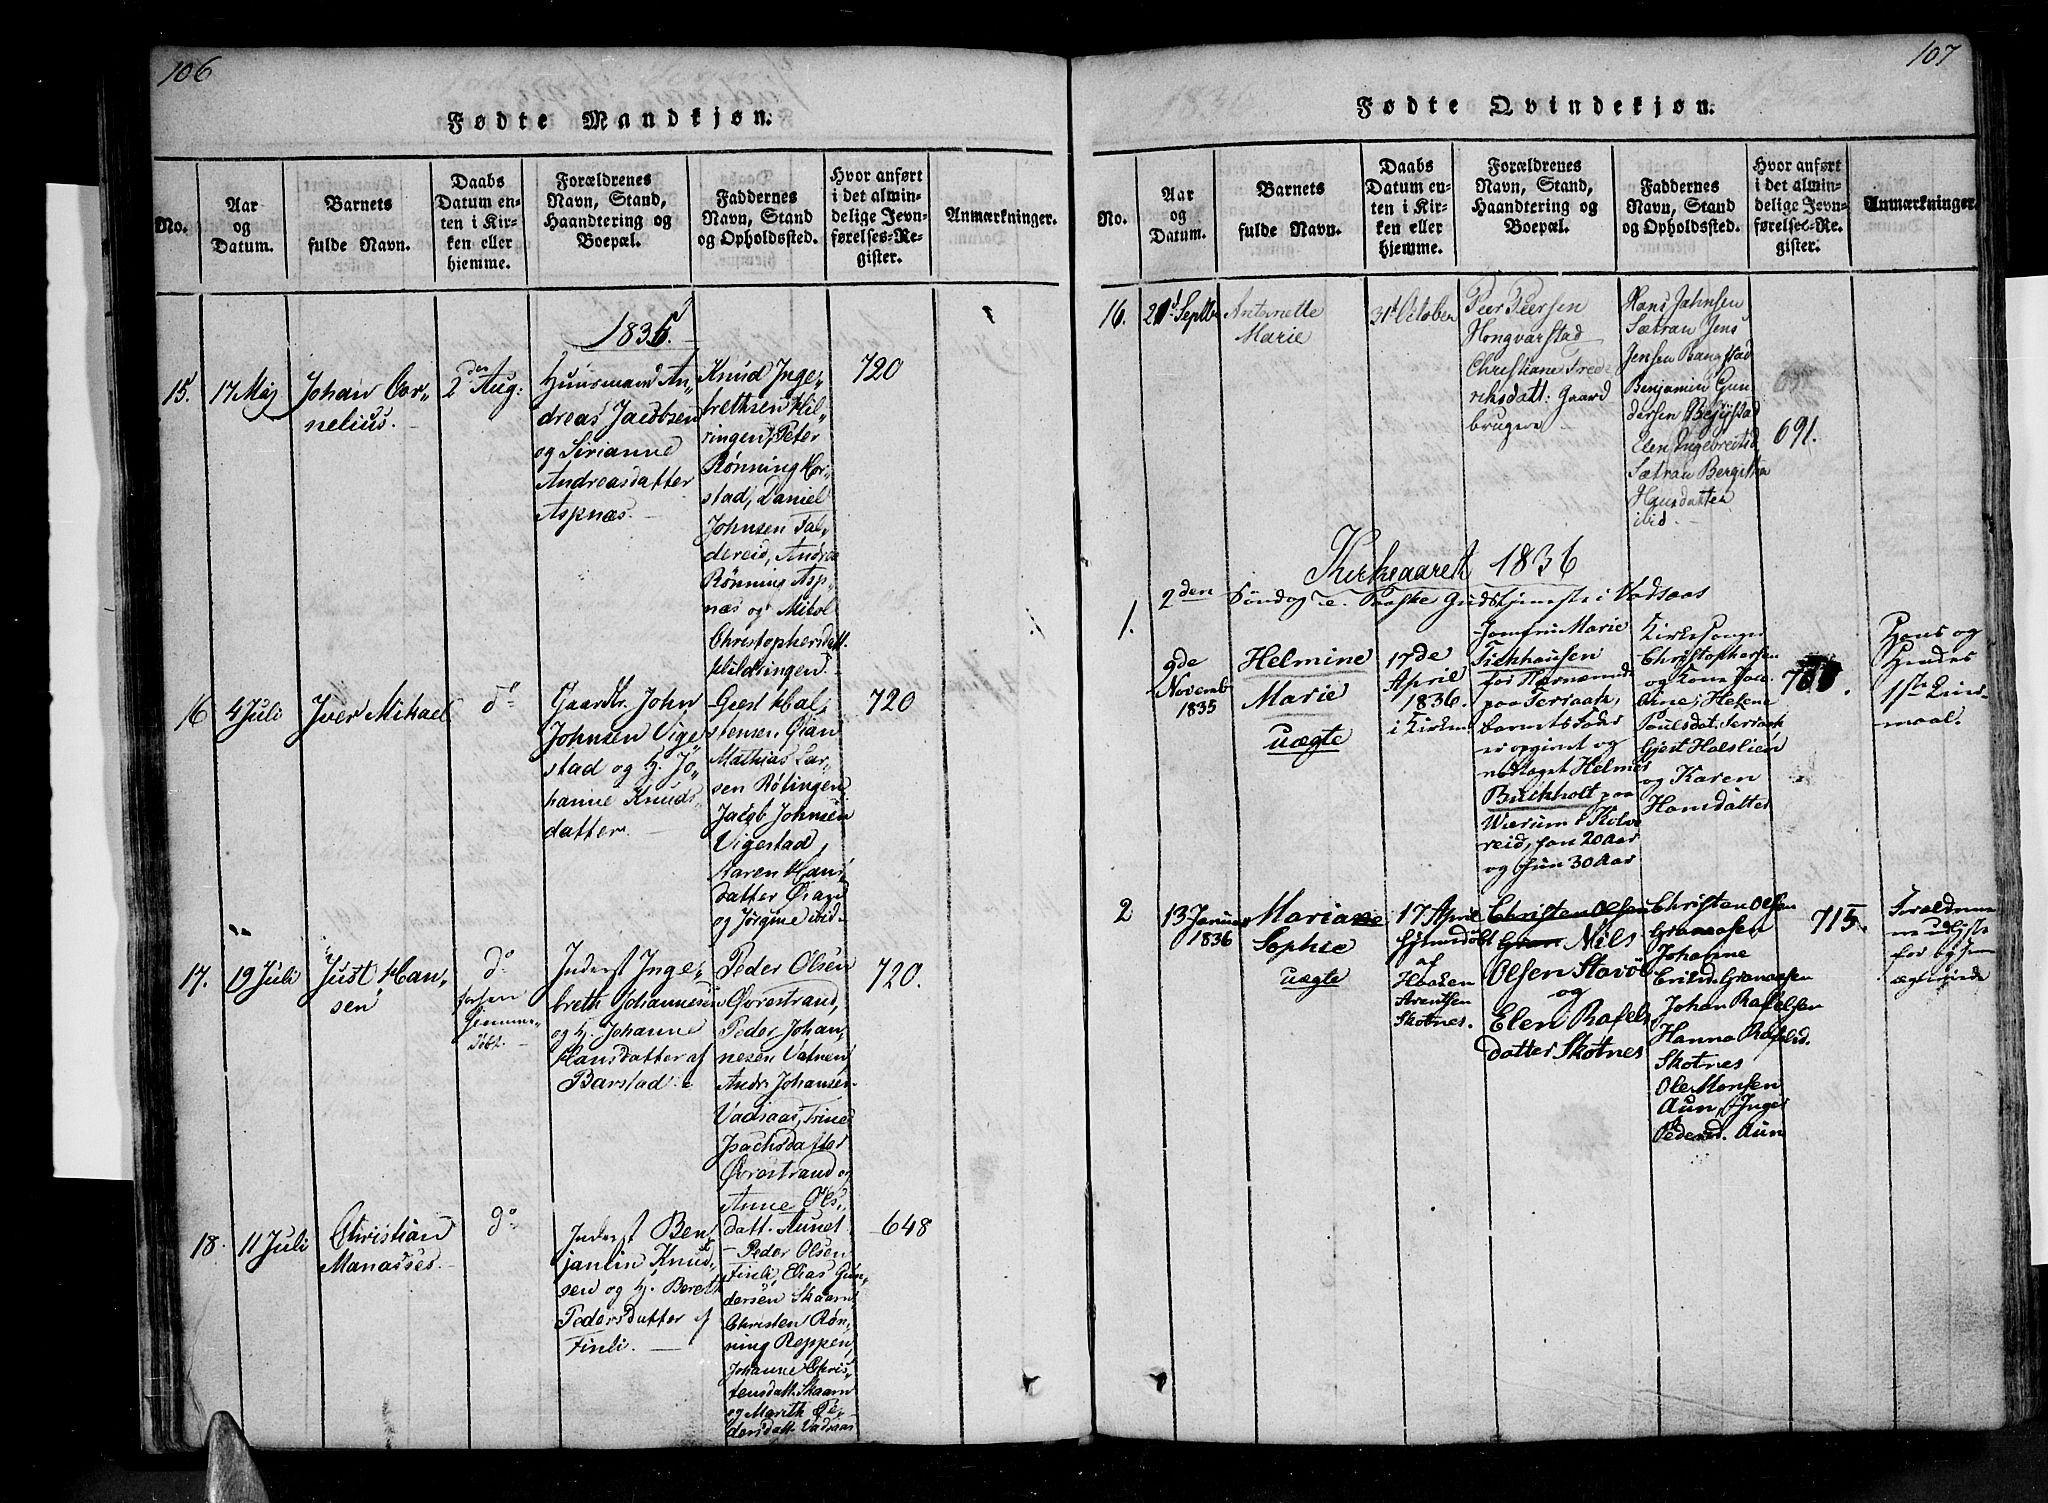 106
Fødte Mandkjøn.
No.
Aar
og
Datum.
Barnets
fulde Navn.
Daabs
Datum en-
ten i Kir-
ken eller
hjemme.
Forældrenes
Navn, Stand,
Haandtering og
Boepæl.
Faddernes
Navn, Stand
og Opholdssted.
Hvor anført
i det almin-
delige Jevn-
førelses-Re-
gister.
Anmærkninger.
1835.
15.
17 Maj
Johan Cor-
nelius.
2den Aug:
Huusmand An-
dreas Jacobsen
og Sirianne
Andreasdatter
Aspnæs.
Knud Inge-
brethsen Hil-
ringen, Peter
Rønning Hor-
stad, Daniel
Johnsen Fal-
dereid, Andrea
Rønning Asp-
næs og
Christophersdatt.
Hildringen.
720
16
4 Juli
Iver Mikael
do
Gaardbr. John
Johnsen Vige
stad og H. Jo-
hanne Knuds-
datter.
Giest Hal-
stensen Gian
Mathias Lar-
sen Røtingen,
Jacob Johnsen
Vigestad,
Karen Hans
datter
og Jørgine ibid
720
17.
19 Juli
Just Han-
sen
do
forhen
hjemme-
døbt.
Inderst Inge-
breth Johannesen
og H. Johanne
Hansdatter af
Barstad.
Peder Olsen
Øvrestrand,
Peder Johan-
nesen Vatnen,
Andr. Johansen
Vadsaas, Trine
Isachsdatter
Øvrestrand og
Anne Ols-
datt. Aunet
720.
18.
11 Juli
Christian
Manasses.
do
Inderst Ben-
jamin Knud-
sen og H. Bereth
Pedersdatter af
Finli.
Peder Olsen
Finli, Elias Gun-
dersen Skaarn
Christen Røn-
ning Reppen,
Johanne Chris-
tensdatt. Skaarn
og Mareth Pe-
dersdatt. Vadsaas
648
107
Fødte Qvindekjøn.
No.
Aar
og
Datum.
Barnets
fulde Navn.
Daabs
Datum en-
ten i Kir-
ken eller
hjemme.
Forældrenes
Navn, Stand,
Haandtering og
Boepæl.
Faddernes
Navn, Stand
og Opholdssted.
Hvor anført
i det almin-
delige Jevn-
førelses-Re-
gister.
Anmærkninger.
16.
21d Septb
Antonette
Marie
31d October
Peer Peersen
Hongvarstad
Christiane Frede
riksdatt: Gaard
brugere
Hans Jahnsen
Sætran Jens
Jensen Rangstad
Benjamin Gun
dersen
Elen Ingebreitsd
Sætran Bergitha
Hansdatter
ibid.
691.
Kirkeaaret 1836
2den Søndag e. Paaske Gudstjeneste i Vadsaas
1.
9de
Novemb
1835
Helmine
Marie
uægte
17de
April
1836.
i Kirken
Jomfru Marie
Fichhausen
for Nærværende
paa Terraak,
barnets Fader
er opgivet og
Helmer
Buchholt paa
Wærum i Kolve
reid, han 20 Aar
og hun 30 Aar
Kirkesanger
Christophersen
og Kone
Helene
Paulsdat. Terraak
Gjert Halslien
og Karen
Hansdatter
Hans og
Hendes
1ste Leier-
maal.
2
13 Januar
1836
Mariane
Sophie
uægte
17 April
hjemdøbt
af
Haagen
Arentsen
Skotnes.
Christen Olsen
Gran Nils
Olsen Stavø
og
Elen Rafels
datter Skotnes
Christen Olsen
Granaasen
Johanne
Eriksd. Granaasen
Johan Rafelsen
Hanna Rafelsd.
Skotnes
Ole Monsen
Aun, Inger
Pedersd. Aun
715.
Forældrene
ere udlyste
for og
ægteviede